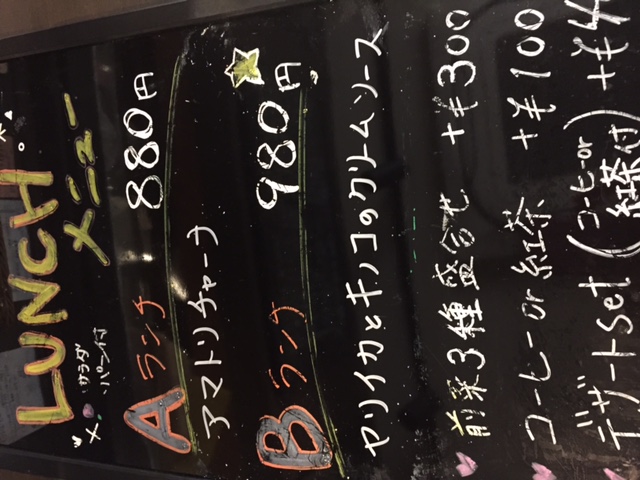 LUNCH
メニュー
※サラダ
パン付
Aランチ 880円
アマトリチャーナ
Bランチ 980円
ヤリイカとキノコのクリームソース
前菜3種盛合せ +¥300
コーヒー or 紅茶 +¥100
デザートset (コーヒー or 紅茶付) +¥4